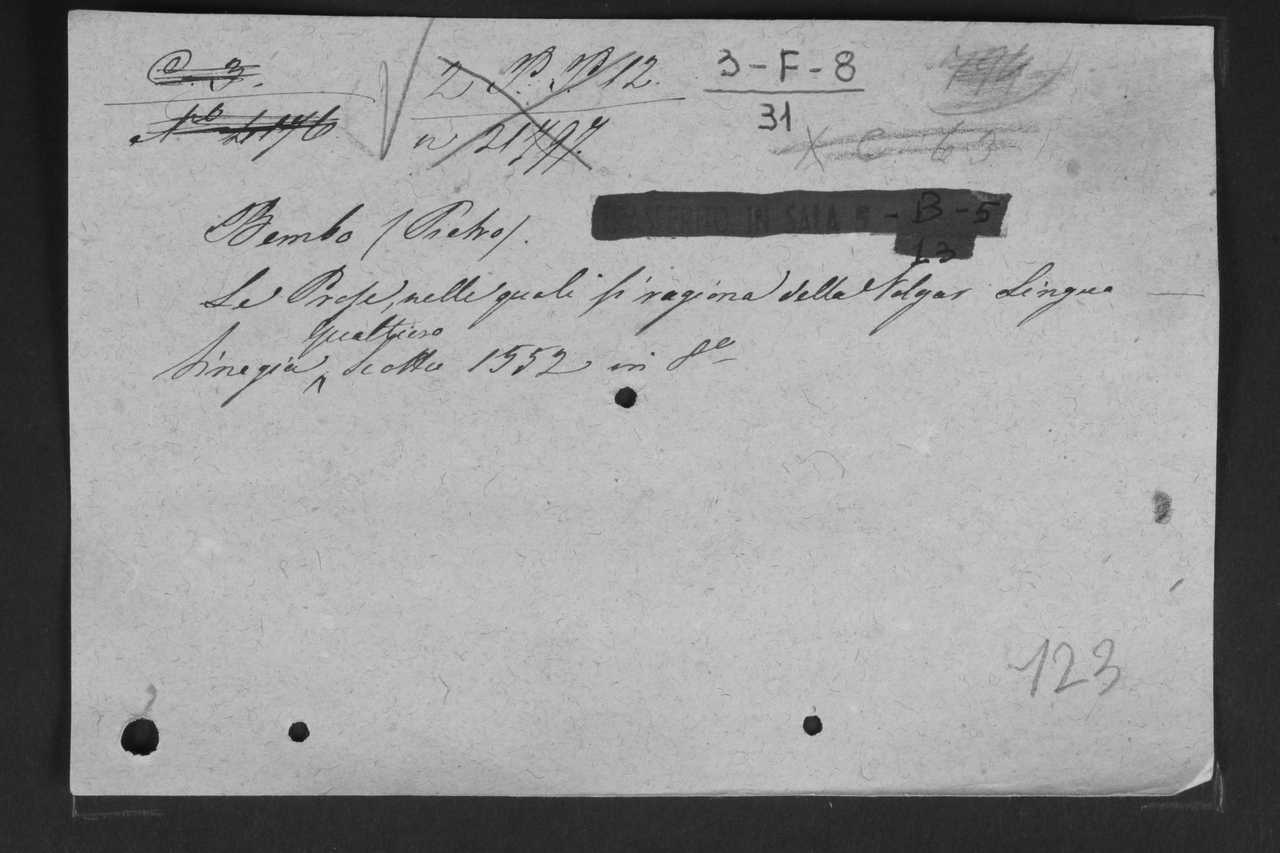 C. 3.
2 P. P. 12.
3-F-8
794
n 21797.
31
X C 63
Bembo (Pietro).
TRASFERITO IN SALA - B - 5
13
Le Prose, nelle quali si ragiona della Volgar Lingua
Gualtiero
Vinegia, Scotto 1552 in 8º
123